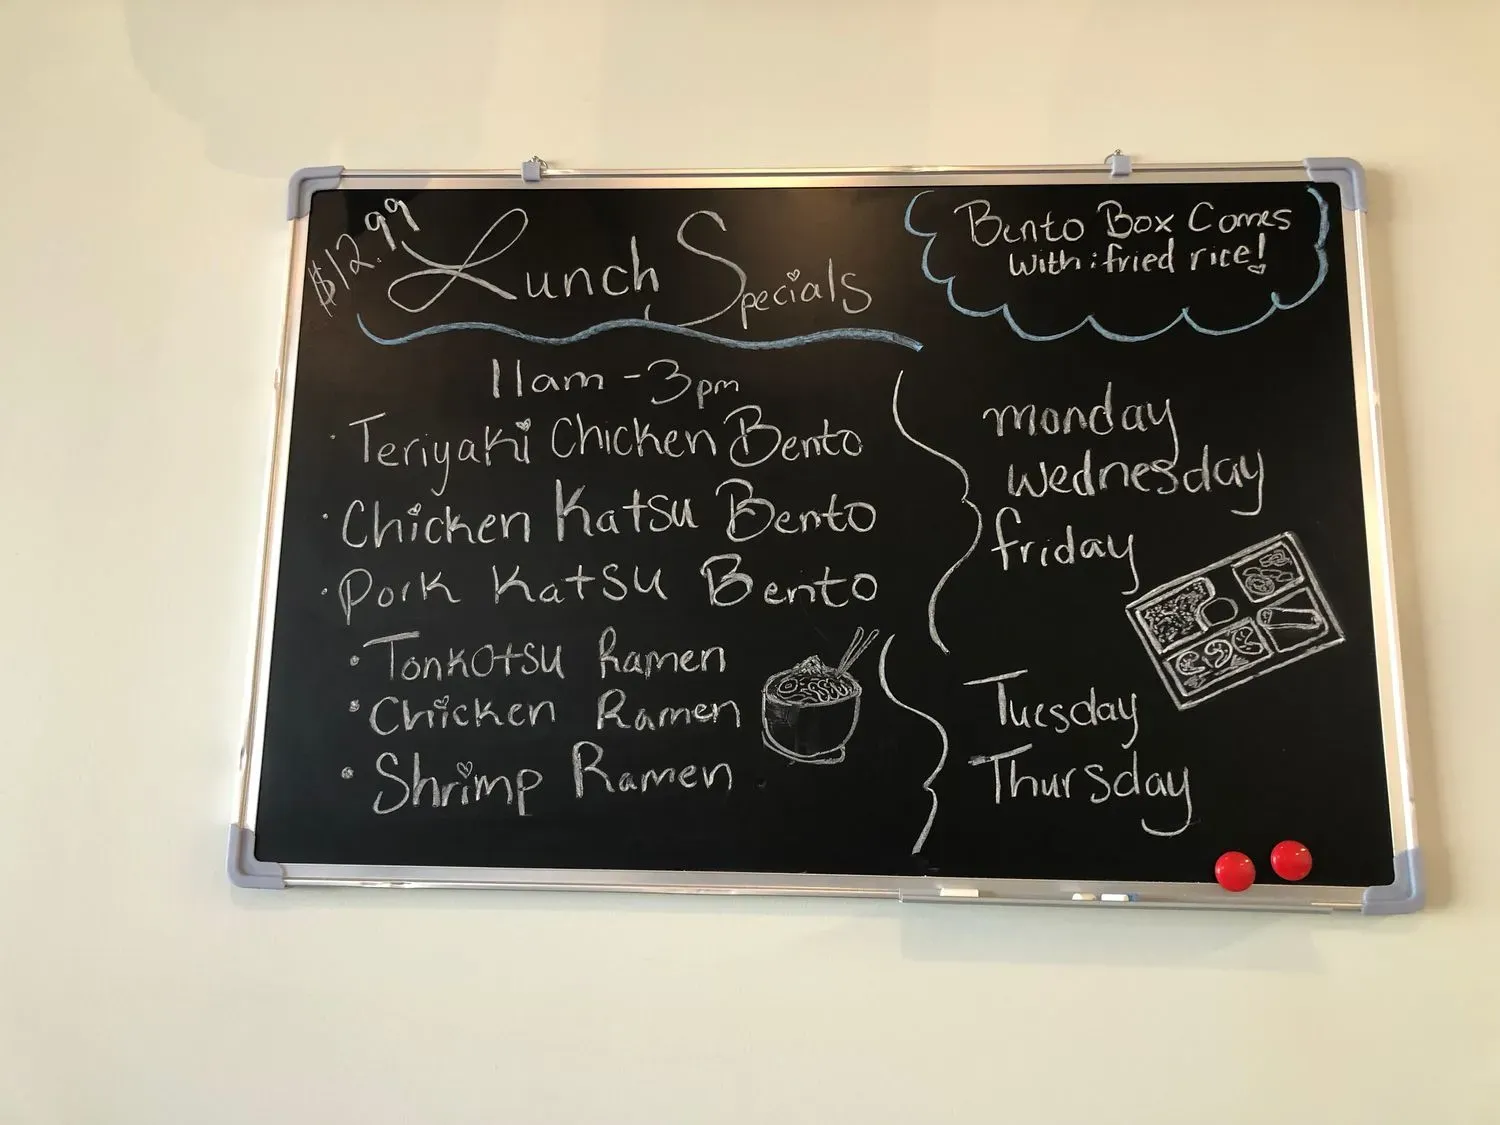 $12.99
Lunch Specials
Bento Box Comes
with: fried rice!
11am - 3pm
· Teriyaki Chicken Bento
· Chicken Katsu Bento
· Pork Katsu Bento
monday
wednesday
friday
• Tonkotsu Ramen
• Chicken Ramen
• Shrimp Ramen
Tuesday
Thursday